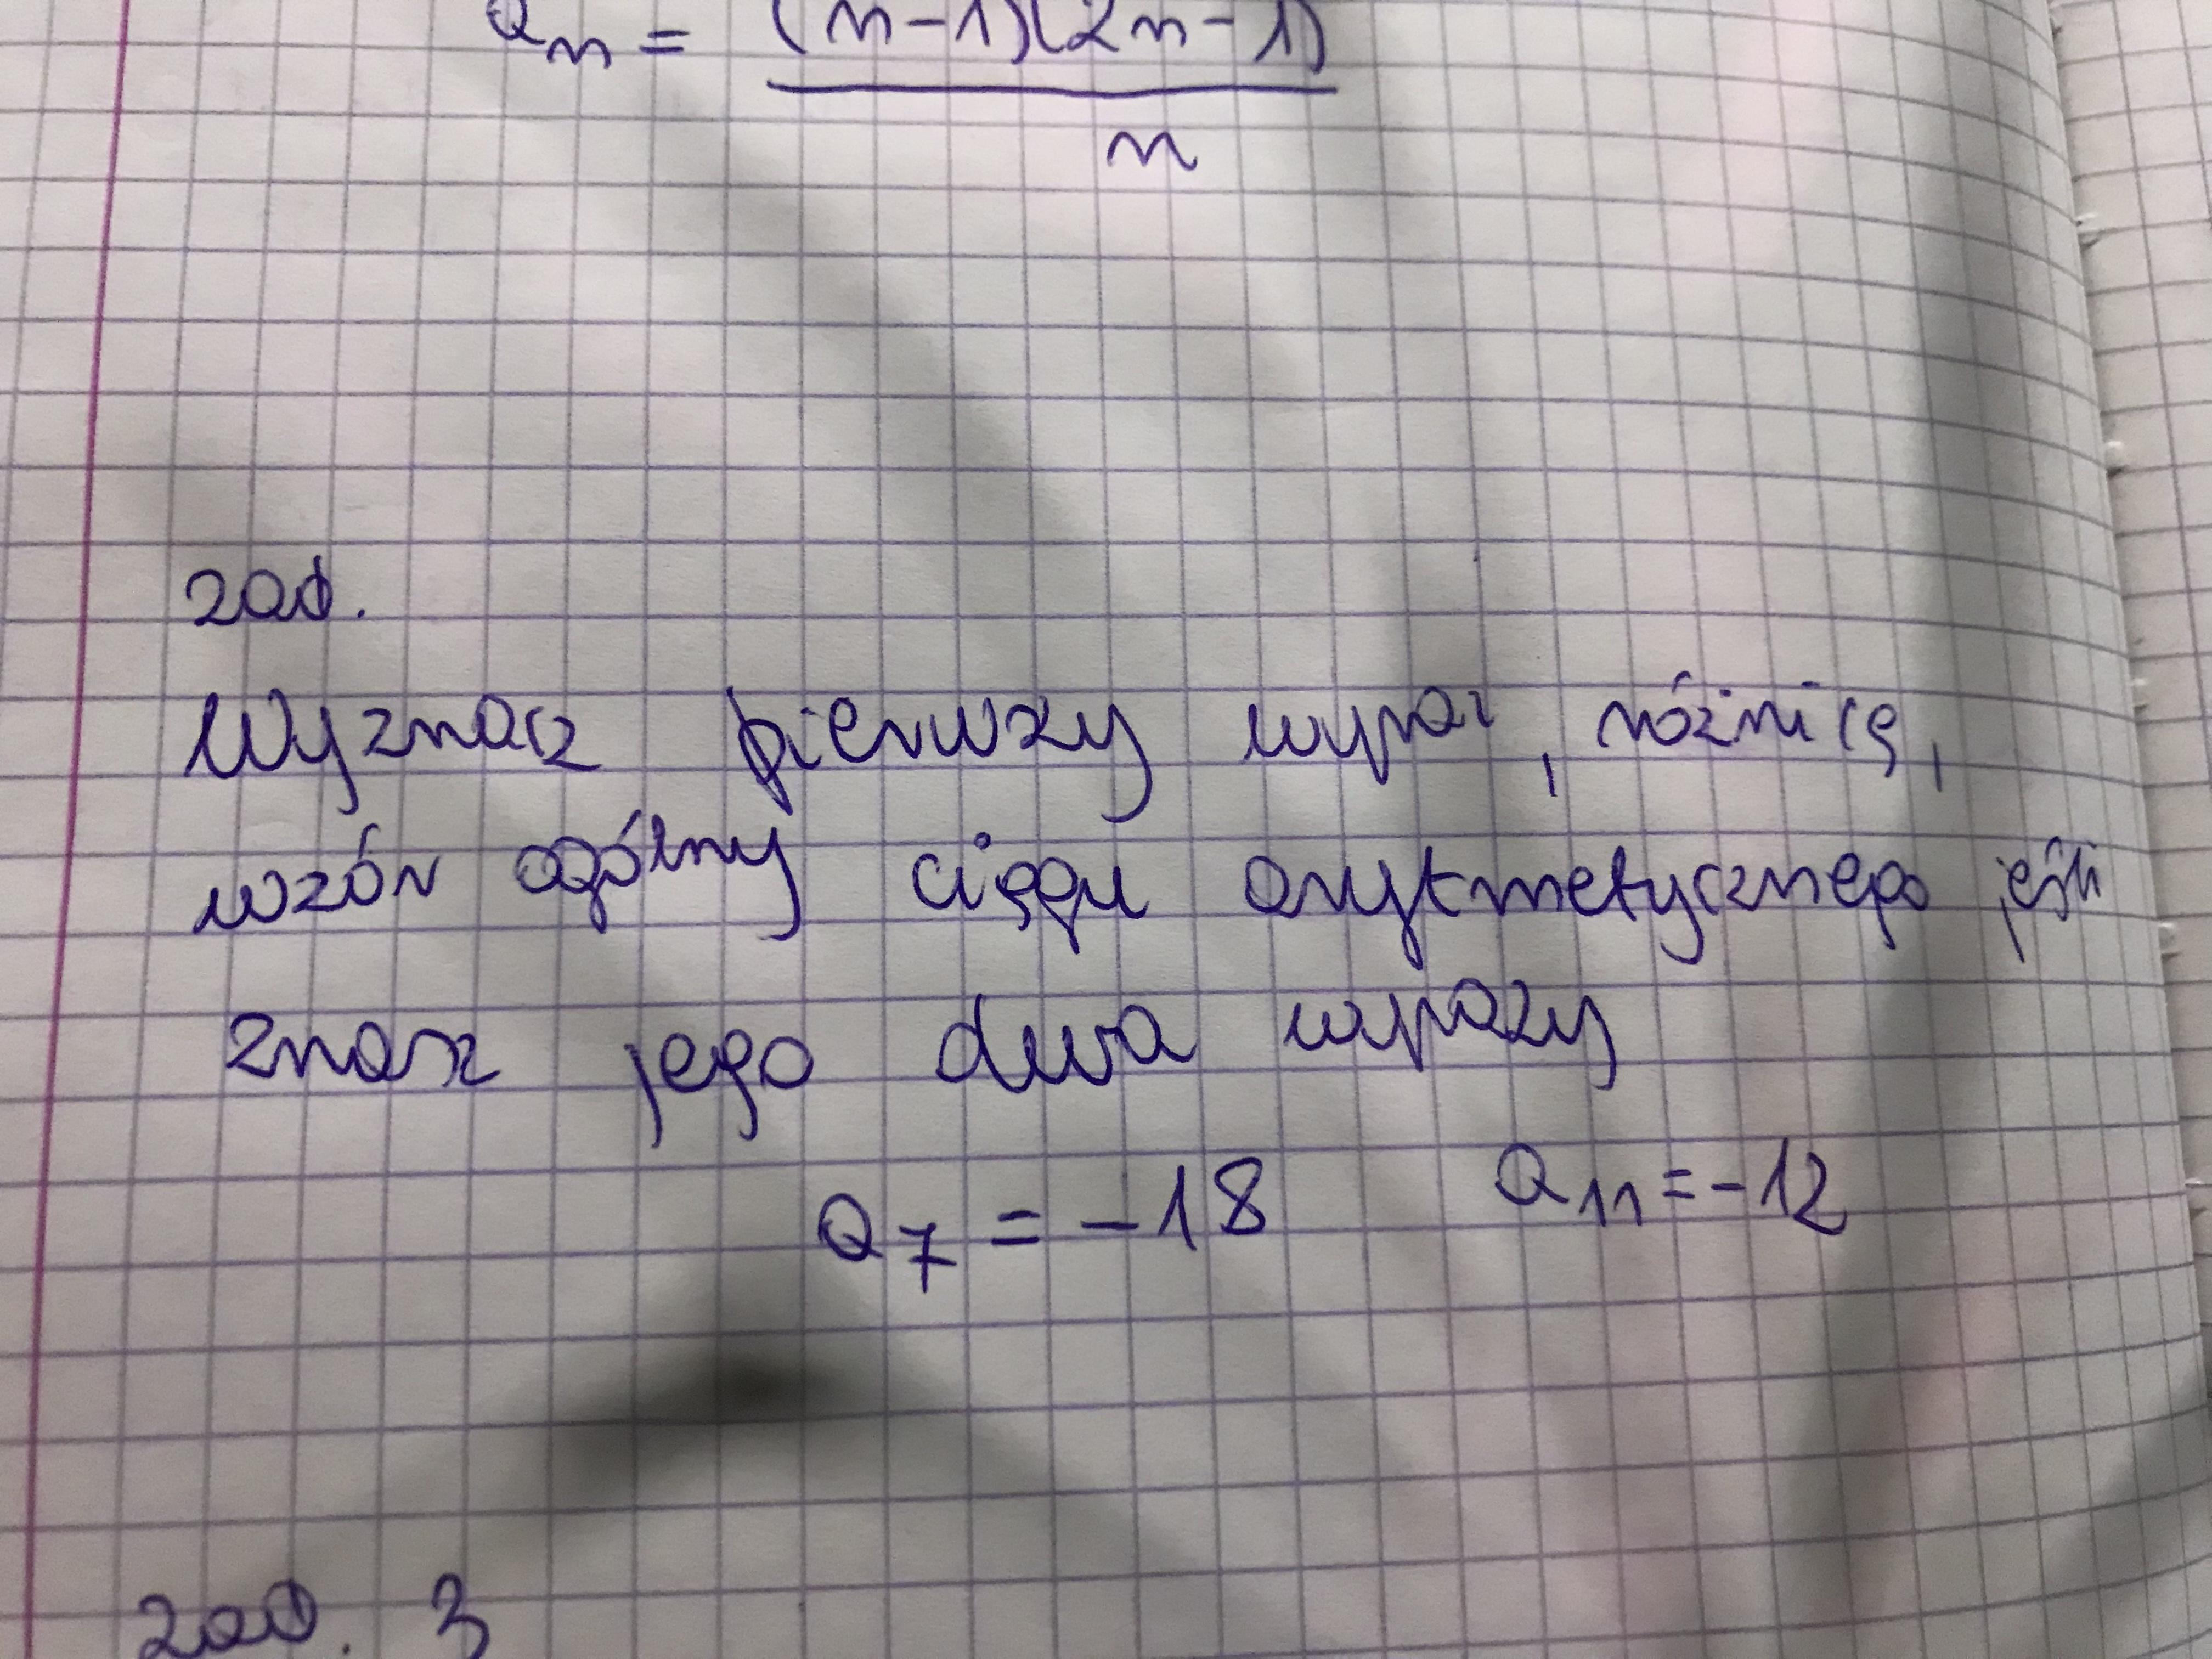 an = (n-1)(2n-1)
n
zad.
Wyznacz pierwszy wyraz, różnicę,
wzór ogólny ciągu arytmetycznego jeśli
znasz jego dwa wyrazy
a7 = -18 a11 = -12
zad. 3